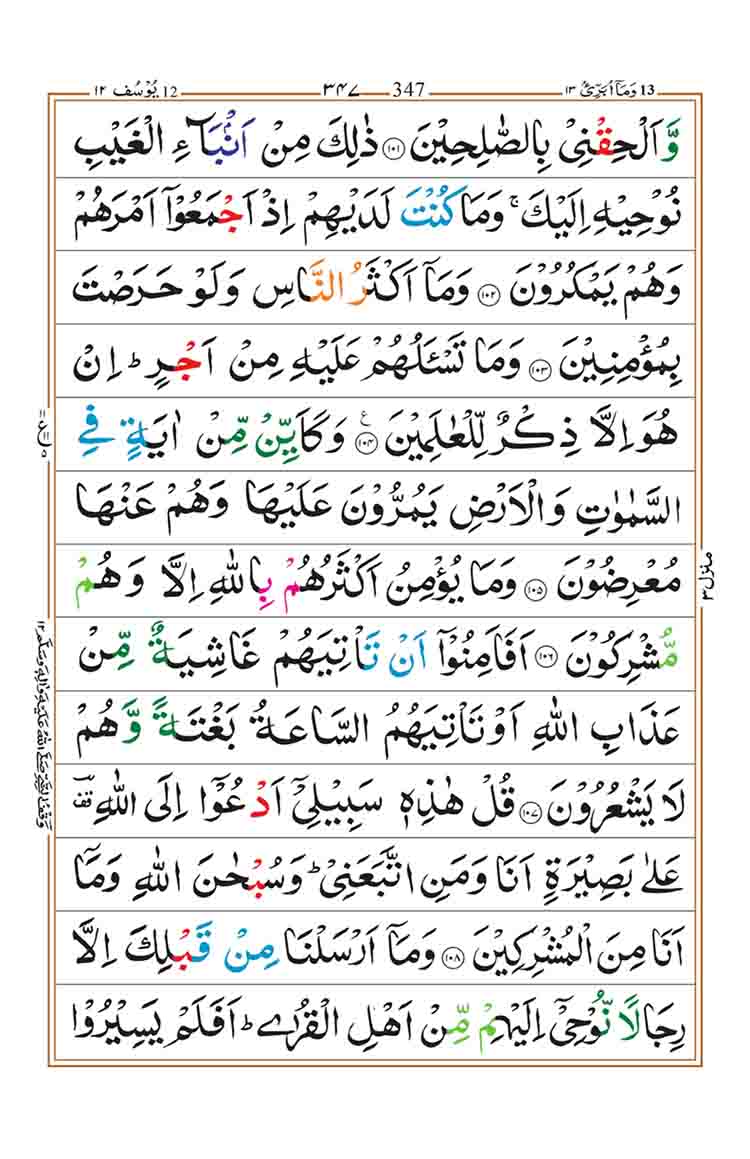 13 وَمَاۤ اُبَرِّئُ ١٣ 347 ٣٤٧ 12 یُوْسُف ١٢
وَّ اَلْحِقْنِیْ بِالصّٰلِحِیْنَ ۝١٠١ ذٰلِكَ مِنْ اَنْۢبَآءِ الْغَیْبِ
نُوْحِیْهِ اِلَیْكَ ۚ وَمَا كُنْتَ لَدَیْهِمْ اِذْ اَجْمَعُوْۤا اَمْرَهُمْ
وَهُمْ یَمْكُرُوْنَ ۝١٠٢ وَمَاۤ اَكْثَرُ النَّاسِ وَلَوْ حَرَصْتَ
بِمُؤْمِنِیْنَ ۝١٠٣ وَمَا تَسْـَٔلُهُمْ عَلَیْهِ مِنْ اَجْرٍ ؕ اِنْ
هُوَ اِلَّا ذِكْرٌ لِّلْعٰلَمِیْنَ ۝١٠٤ ع وَكَاَیِّنْ مِّنْ اٰیَةٍ فِی
السَّمٰوٰتِ وَالْاَرْضِ یَمُرُّوْنَ عَلَیْهَا وَهُمْ عَنْهَا
مُعْرِضُوْنَ ۝١٠٥ وَمَا یُؤْمِنُ اَكْثَرُهُمْ بِاللّٰهِ اِلَّا وَهُمْ
مُّشْرِكُوْنَ ۝١٠٦ اَفَاَمِنُوْۤا اَنْ تَاْتِیَهُمْ غَاشِیَةٌ مِّنْ
عَذَابِ اللّٰهِ اَوْ تَاْتِیَهُمُ السَّاعَةُ بَغْتَةً وَّهُمْ
لَا یَشْعُرُوْنَ ۝١٠٧ قُلْ هٰذِهٖ سَبِیْلِیْۤ اَدْعُوْۤا اِلَی اللّٰهِ ؔ۫
عَلٰی بَصِیْرَةٍ اَنَا وَمَنِ اتَّبَعَنِیْ ؕ وَسُبْحٰنَ اللّٰهِ وَمَاۤ
اَنَا مِنَ الْمُشْرِكِیْنَ ۝١٠٨ وَمَاۤ اَرْسَلْنَا مِنْ قَبْلِكَ اِلَّا
رِجَالًا نُّوْحِیْۤ اِلَیْهِمْ مِّنْ اَهْلِ الْقُرٰی ؕ اَفَلَمْ یَسِیْرُوْا
منزل ٣
وقف النبی صلی اللہ علیہ وآلہ وسلم ١٢